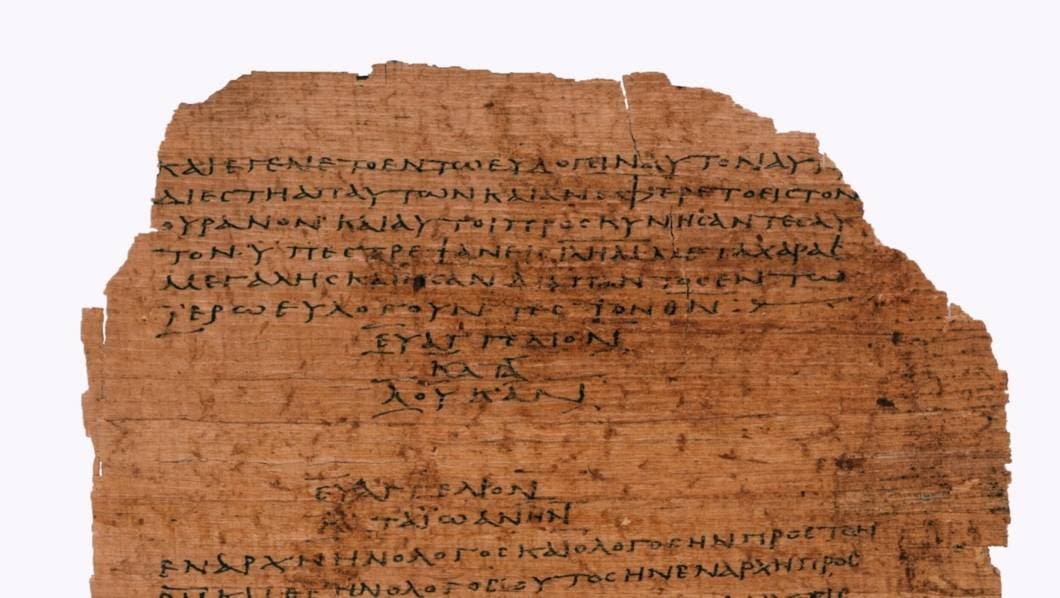 ΚΑΙΕΓΕΝΕΤΟΕΝΤΩΕΥΛΟΓΕΙΝΑΥΤΟΝΑΥΤ
ΔΙΕϹΤΗΑΠΑΥΤΩΝΚΑΙΑΝΕΦΕΡΕΤΟΕΙϹΤΟΝ
ΟΥΡΑΝΟΝ· ΚΑΙΑΥΤΟΙΠΡΟϹΚΥΝΗϹΑΝΤΕϹΑΥ
ΤΟΝ·ΥΠΕϹΤΡΕΨΑΝΕΙϹΙΛΗΜΜΕΤΑΧΑΡΑϹ
ΜΕΓΑΛΗϹΚΑΙΗϹΑΝΔΙΑΠΑΝΤΟϹΕΝΤΩ
ΪΕΡΩΕΥΛΟΓΟΥΝΤΕϹΤΟΝΘ̅Ν̅:
ΕΥΑΓΓΕΛΙΟΝ
ΚΑΤΑ
ΛΟΥΚΑΝ
ΕΥΑΓΓΕΛΙΟΝ
ΚΑΤΑΪΩΑΝΗΝ
ΕΝΑΡΧΗΗΝΟΛΟΓΟϹΚΑΙΟΛΟΓΟϹΗΝΠΡΟϹΤΟΝ
Θ̅Ν̅ΚΑΙΘ̅Ϲ̅ΗΝΟΛΟΓΟϹΟΥΤΟϹΗΝΕΝΑΡΧΗΠΡΟϹ